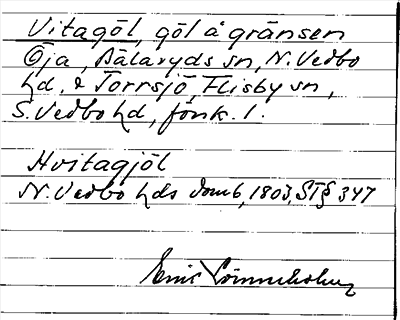 Vitagöl, göl å gränsen
Öja, Bälaryds sn, N. Vedbo
hd, & Torrsjö, Flisby sn,
S. Vedbo hd, Jönk. l.
Hvitagjöl
N. Vedbo hds domb, 1803, ST § 347
Emil